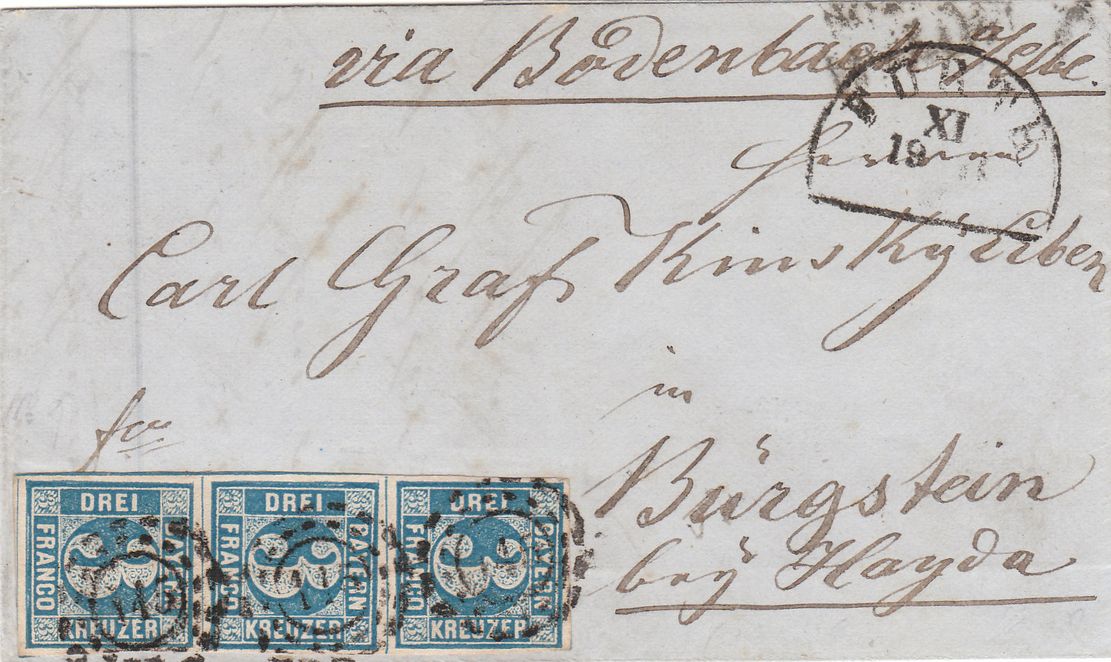 via Bodenbach
FÜRTH
XI
19
Herrn
Carl Graf Kinsky
in
Bürgstein
bey Hayda
DREI DREI DREI
FRANCO BAYERN FRANCO BAYERN FRANCO BAYERN
3 3 3
KREUZER KREUZER KREUZER